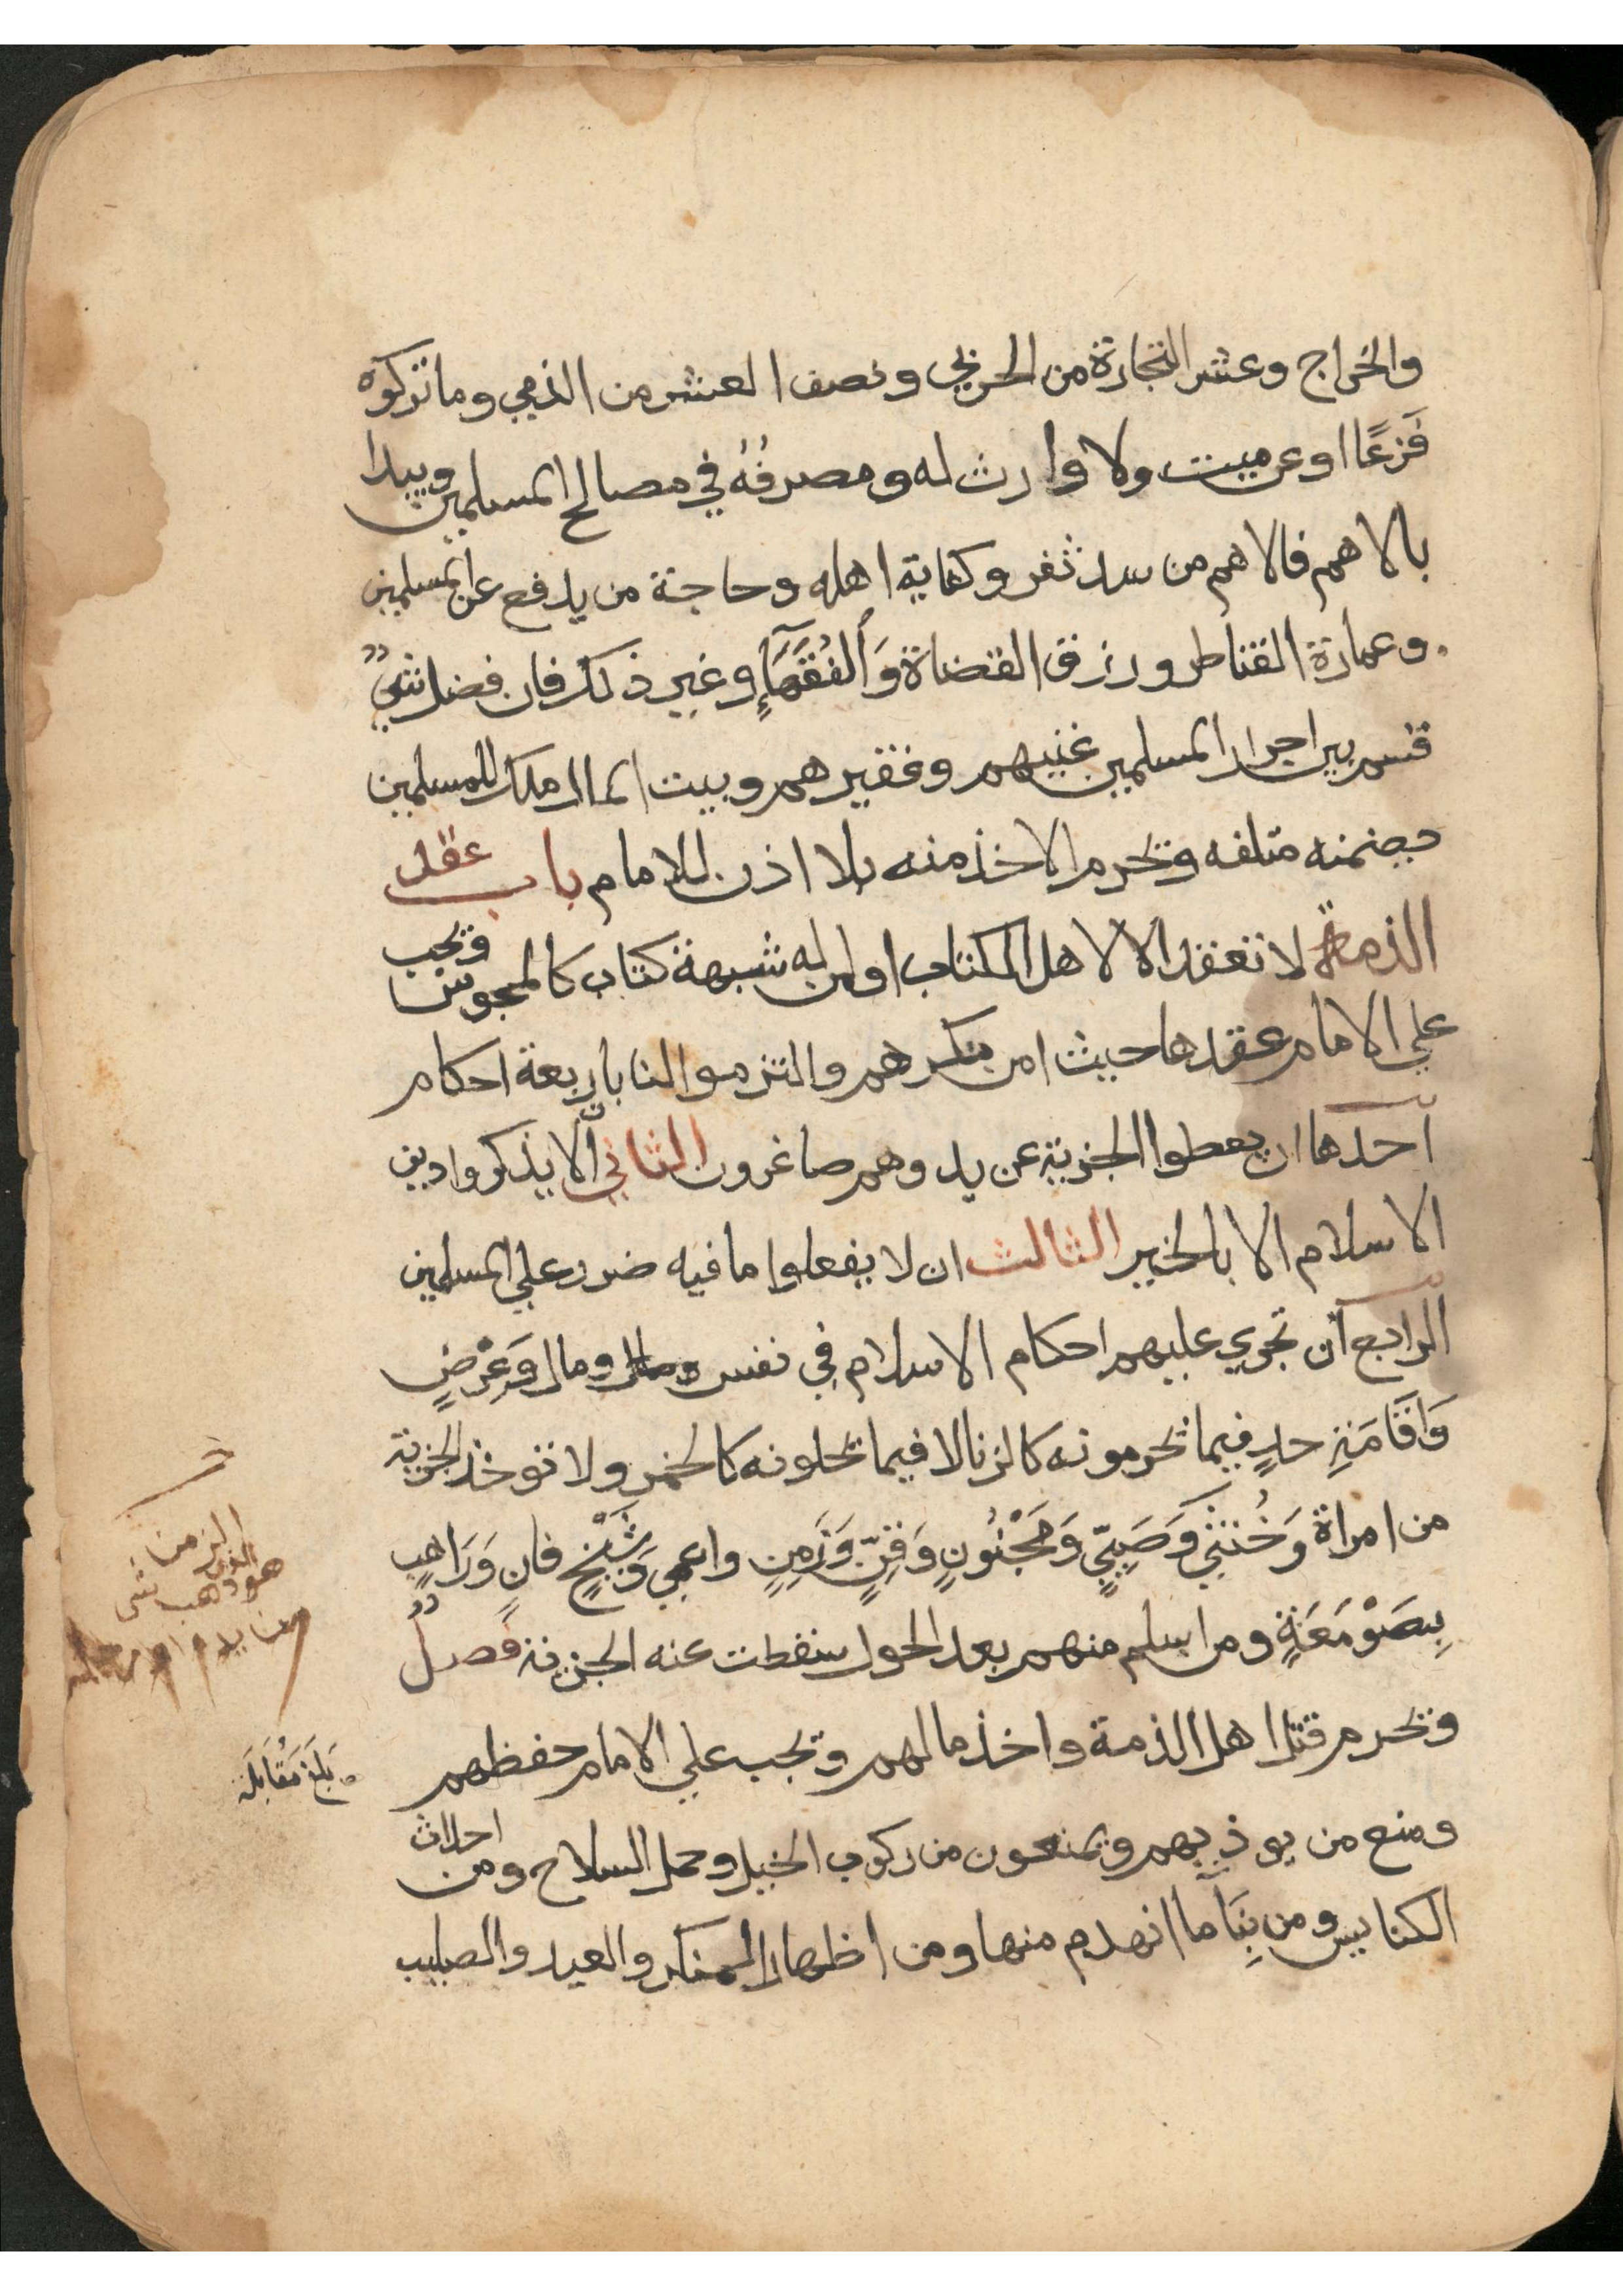 والخراج وعشر التجارة من الحربي ونصف العشر من الذمي وما تركوه
فَزعًا او عن ميت ولا وارث له ومصرفُهُ في مصالح المسلمين ويبدا
بالاهم فالاهم من سد ثغر وكفاية اهله وحاجة من يدفع عن المسلمين
وعمارة القناطر ورزق القضاة وَالفُقَهَآءِ وغير ذلك فان فضل شيٌ
قسم بين احرار المسلمين غنيهم وفقيرهم وبيت المال ملك للمسلمين
يضمنه متلفه ويحرم الاخذ منه بلا اذن للامام باب عقد
الذمة لا تعقد الا لاهل الكتاب او لمن له شبهة كتاب كالمجوس ويجب
علي الامام عقدها حيث امن مكرهم والتزموا لنا باربعة احكام
احدها ان يعطوا الجزية عن يد وهم صاغرون الثاني ألا يذكروا دين
الاسلام الا بالخير الثالث ان لا يفعلوا ما فيه ضرر علي المسلمين
الرابع ان تجري عليهم احكام الاسلام في نفس ومال وَعِرْضٍ
وَاقَامَةِ حدٍ فيما يحرمونه كالزنا لا فيما يحلونه كالخمر ولا توخذ الجزية
من امراة وَخُنثي وَصَبِيٍّ وَمَجْنُونٍ وَقِنٍّ وَزَمِنٍ واعمي وَشَيْخٍ فانٍ وَرَاهبٍ
بِصَوْمَعَةٍ ومن اسلم منهم بعد الحول سقطت عنه الجزية فصلٌ
ويحرم قتل اهل الذمة واخذ مالهم ويجب علي الامام حفظهم
ومنع من يوذيهم ويمنعون من ركوب الخيل وحمل السلاح ومن احداث
الكنايس ومن بِنَآ ما انهدم منها ومن اظهار المنكر والعيد والصليب
الزمن
هو الذي ذهب شي
من يده او رجله
بَلَغَ مُقَابَلَه